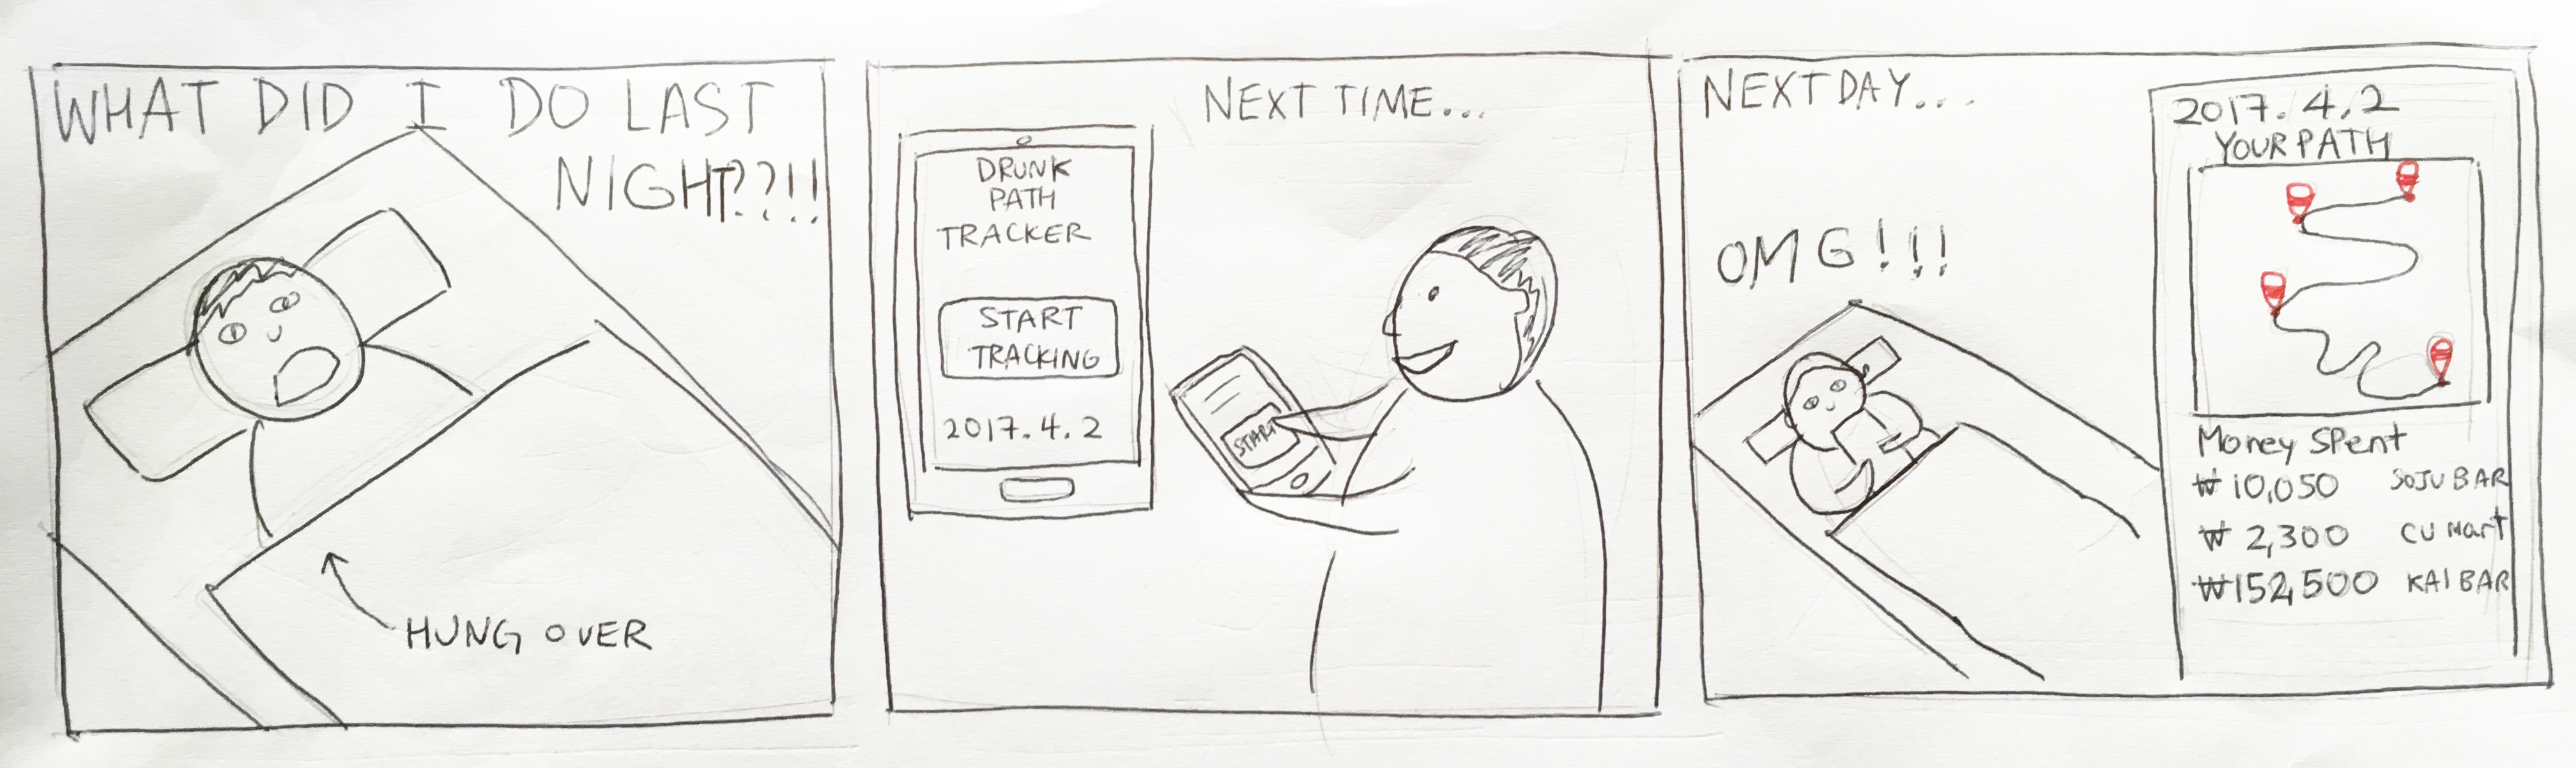 WHAT DID I DO LAST
NIGHT??!!
HUNG OVER
NEXT TIME...
DRUNK
PATH
TRACKER
START
TRACKING
2017.4.2
START
NEXT DAY...
OMG!!!
2017.4.2
YOUR PATH
Money Spent
₩10,050 SOJU BAR
₩ 2,300 CU Mart
₩152,500 KAI BAR